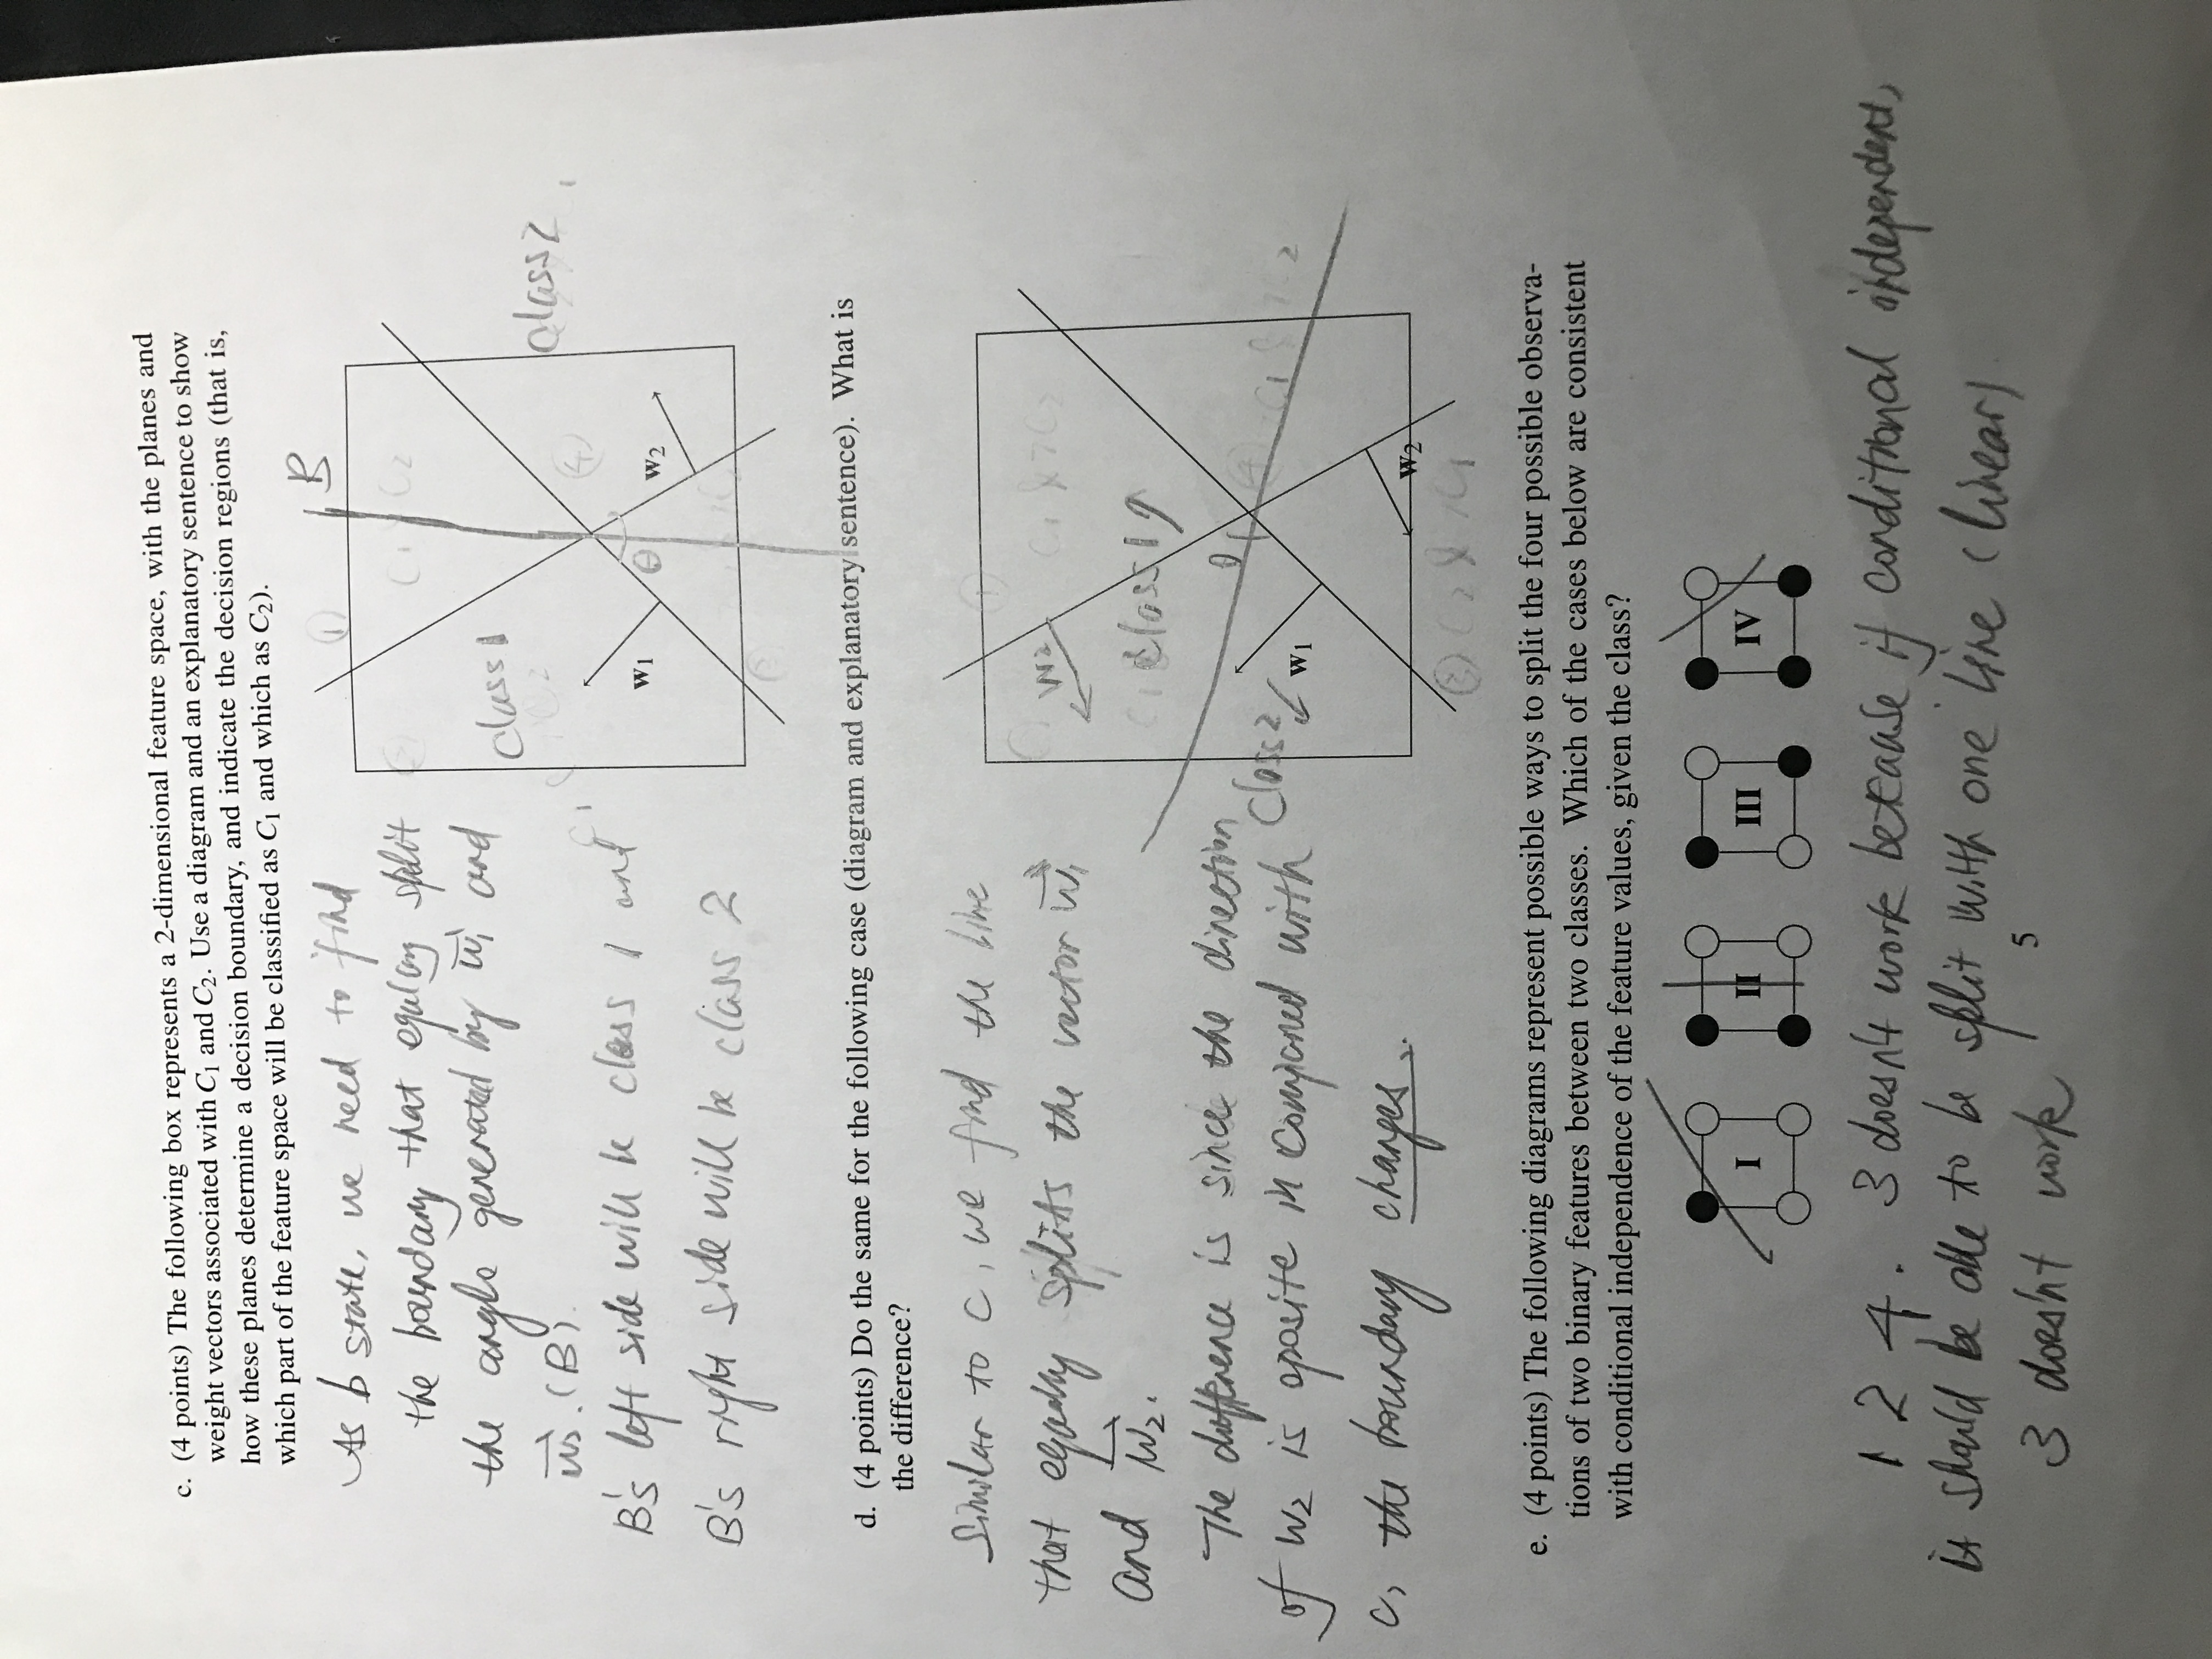 c. (4 points) The following box represents a 2-dimensional feature space, with the planes and
weight vectors associated with C1 and C2. Use a diagram and an explanatory sentence to show
how these planes determine a decision boundary, and indicate the decision regions (that is,
which part of the feature space will be classified as C1 and which as C2).
As b state, we need to find
the boundary that split
the angle generated by w1 and
w2. (B).
B's left side will be class 1 and
B's right side will be class 2
B
C1 C2
class 1
class 2
w1
θ
w2
d. (4 points) Do the same for the following case (diagram and explanatory sentence). What is
the difference?
Similar to c, we find the line
that equally splits the vector w1
and w2.
The difference is since the direction
of w2 is oposite in compared with
c, the boundary changes.
w2
class 1
θ
class 2
w1
w2
e. (4 points) The following diagrams represent possible ways to split the four possible observa-
tions of two binary features between two classes. Which of the cases below are consistent
with conditional independence of the feature values, given the class?
I II III IV
1 2 4. 3 doesn't work because if conditional independent,
it should be able to be split with one line (linear)
3 doesn't work
5